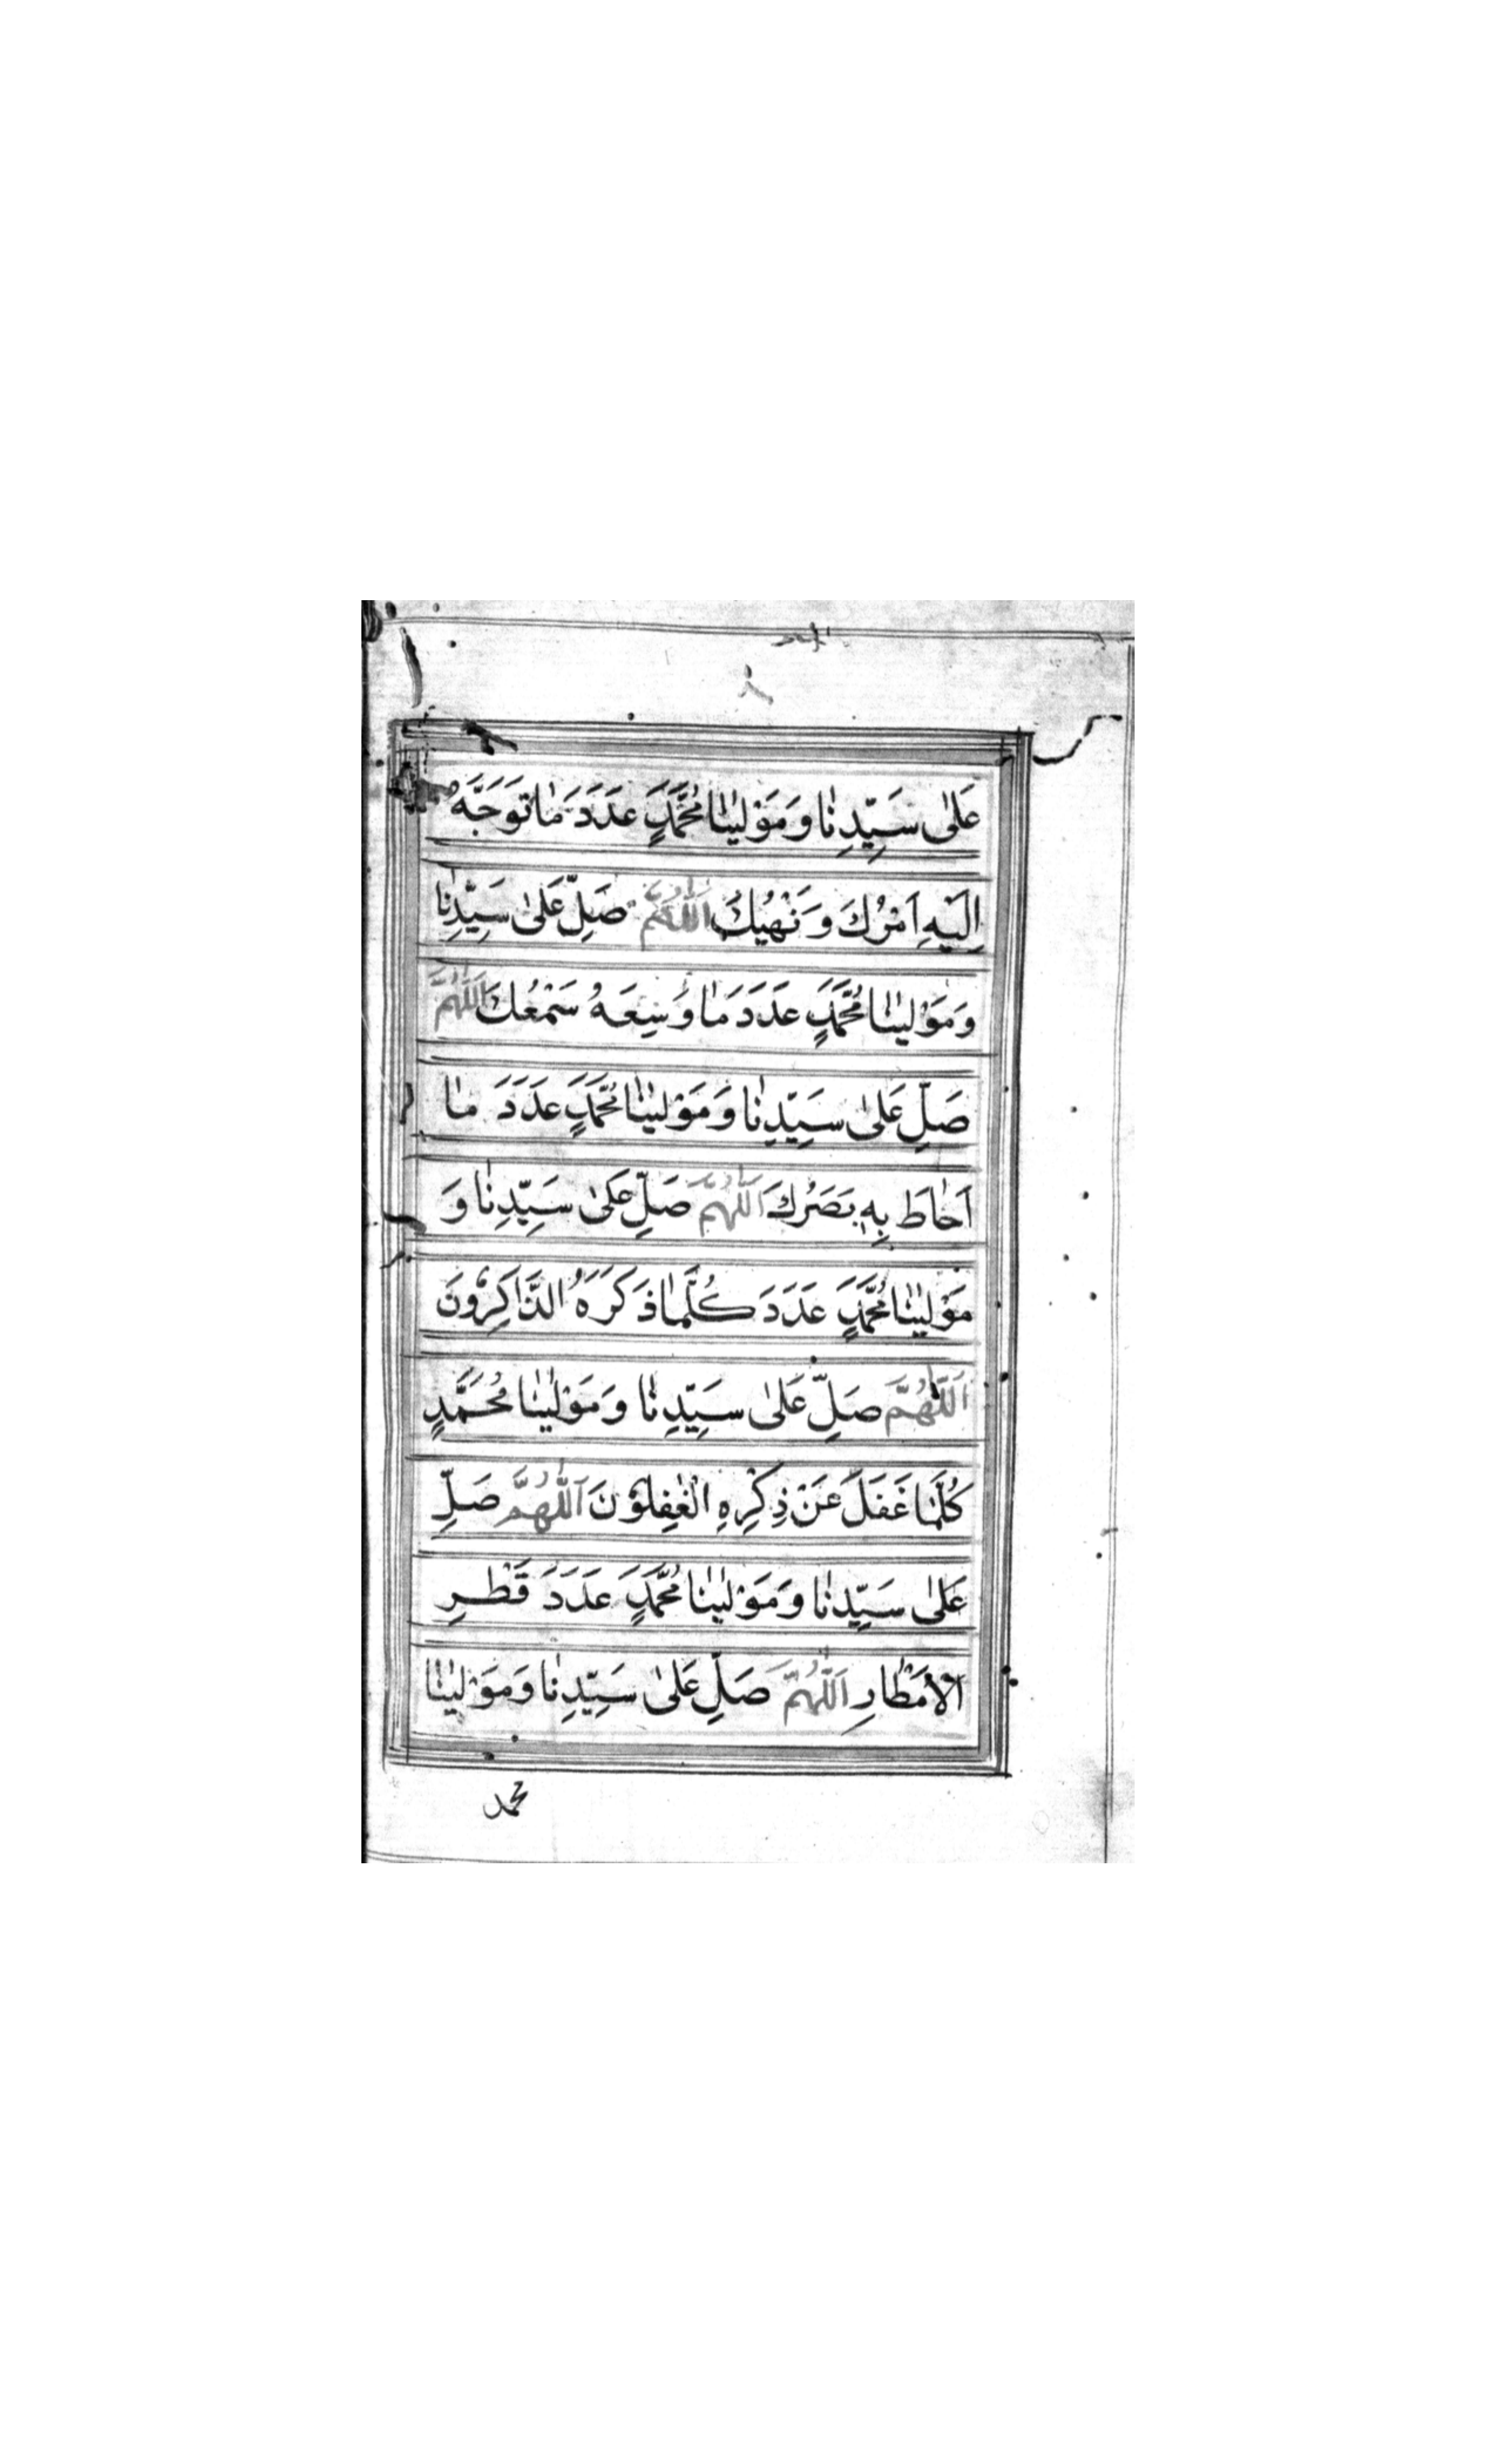 عَلٰى سَيِّدِنٰا وَمَوْلٰينٰا مُحَمَّدٍ عَدَدَ مٰا تَوَجَّهَ
اِلَيْهِ اَمْرُكَ وَنَهْيُكَ اَللّٰهُمَّ صَلِّ عَلٰى سَيِّدِنٰا
وَمَوْلٰينٰا مُحَمَّدٍ عَدَدَ مٰا وَسِعَهُ سَمْعُكَ اَللّٰهُمَّ
صَلِّ عَلٰى سَيِّدِنٰا وَمَوْلٰينٰا مُحَمَّدٍ عَدَدَ مٰا
اَحٰاطَ بِهٖ بَصَرُكَ اَللّٰهُمَّ صَلِّ عَلٰى سَيِّدِنٰا وَ
مَوْلٰينٰا مُحَمَّدٍ عَدَدَ كُلَّمٰا ذَكَرَهُ الذَّاكِرُونَ
اَللّٰهُمَّ صَلِّ عَلٰى سَيِّدِنٰا وَمَوْلٰينٰا مُحَمَّدٍ
كُلَّمٰا غَفَلَ عَنْ ذِكْرِهِ الْغٰفِلُوْنَ اَللّٰهُمَّ صَلِّ
عَلٰى سَيِّدِنٰا وَمَوْلٰينٰا مُحَمَّدٍ عَدَدَ قَطْرِ
الْاَمْطٰارِ اَللّٰهُمَّ صَلِّ عَلٰى سَيِّدِنٰا وَمَوْلٰينٰا
محمد